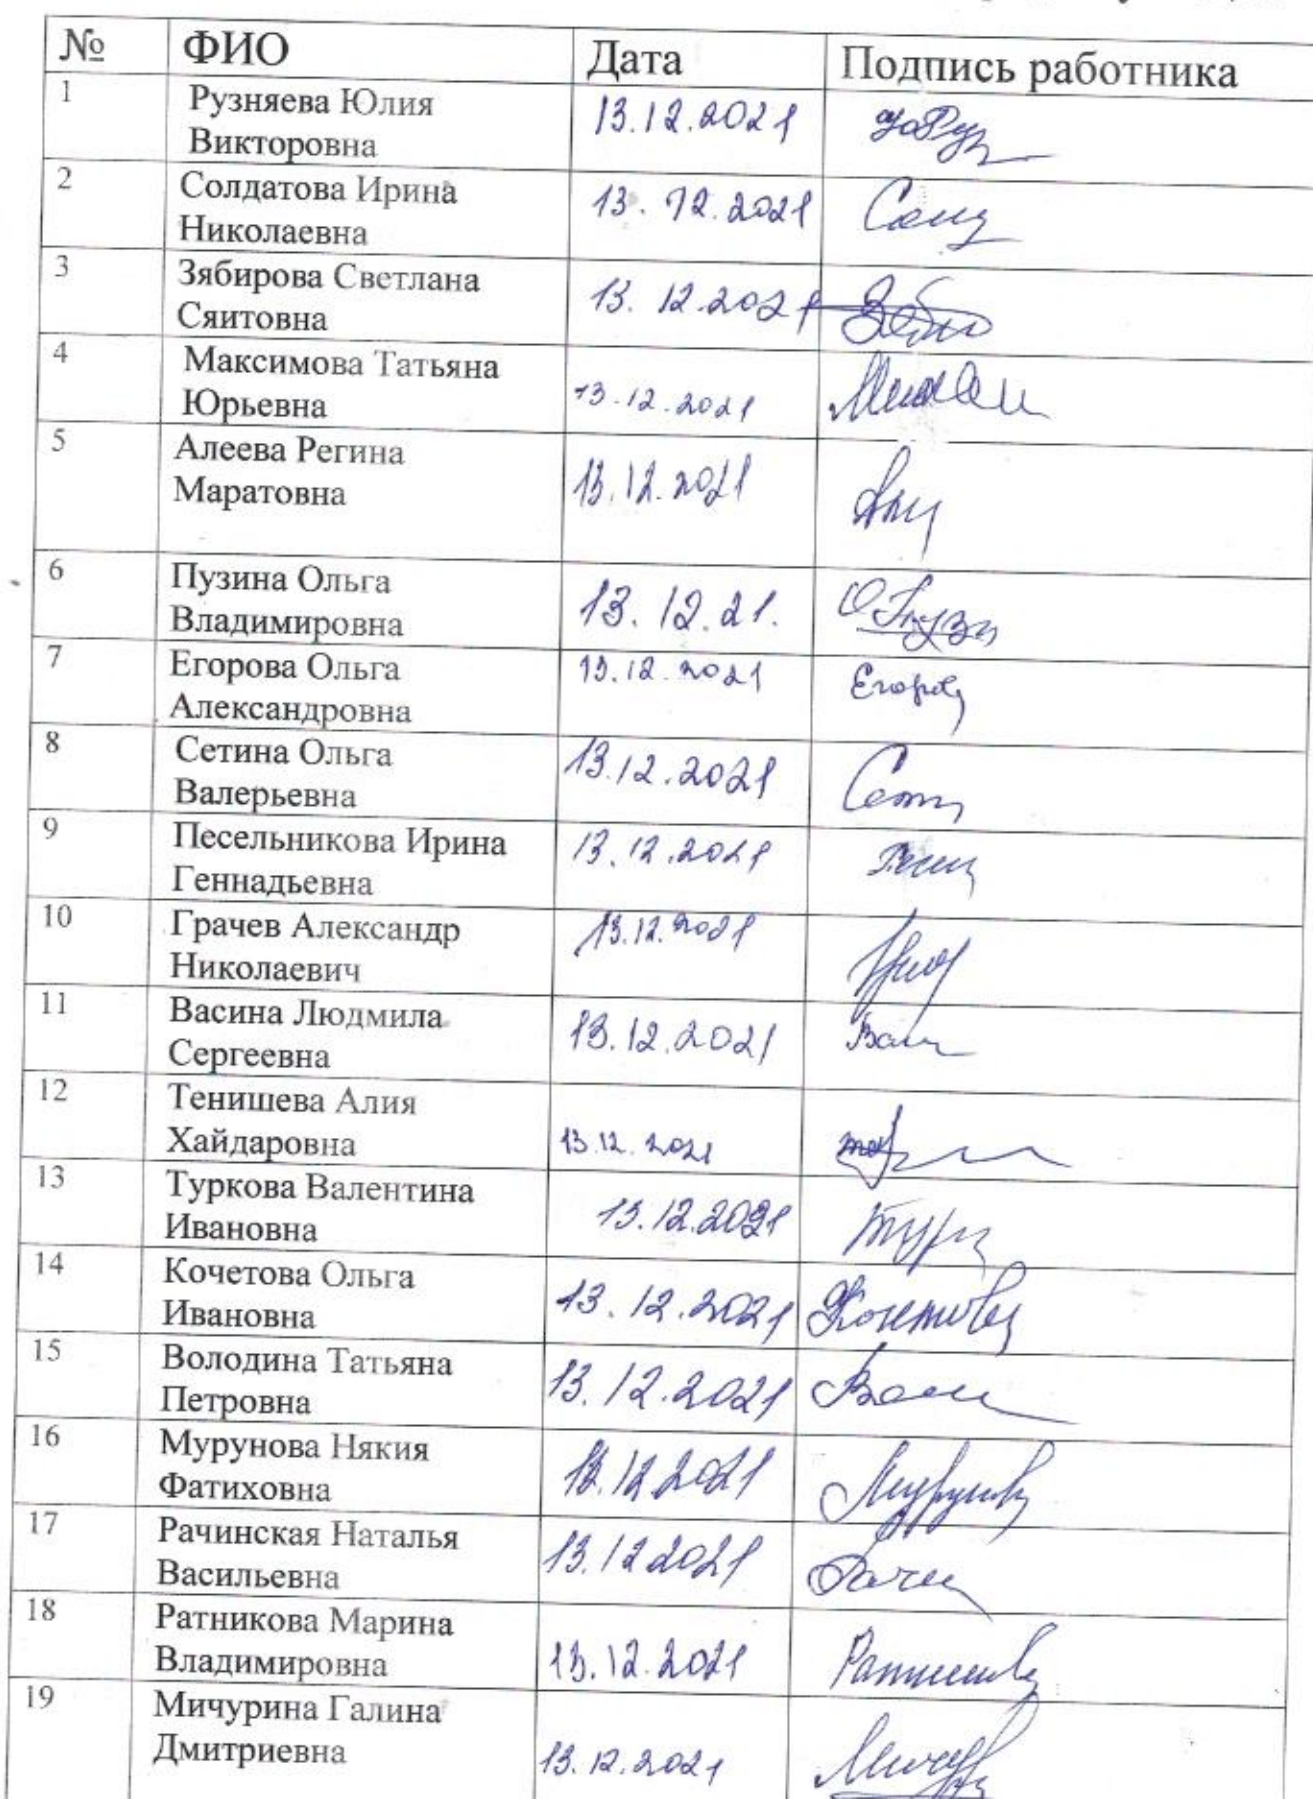 № ФИО Дата Подпись работника
1 Рузняева Юлия
Викторовна 13.12.2021
2 Солдатова Ирина
Николаевна 13.12.2021
3 Зябирова Светлана
Сяитовна 13.12.2021
4 Максимова Татьяна
Юрьевна 13.12.2021
5 Алеева Регина
Маратовна 13.12.2021
6 Пузина Ольга
Владимировна 13.12.21.
7 Егорова Ольга
Александровна 13.12.2021
8 Сетина Ольга
Валерьевна 13.12.2021
9 Песельникова Ирина
Геннадьевна 13.12.2021
10 Грачев Александр
Николаевич 13.12.2021
11 Васина Людмила
Сергеевна 13.12.2021
12 Тенишева Алия
Хайдаровна 13.12.2021
13 Туркова Валентина
Ивановна 13.12.2021
14 Кочетова Ольга
Ивановна 13.12.2021
15 Володина Татьяна
Петровна 13.12.2021
16 Мурунова Някия
Фатиховна 13.12.2021
17 Рачинская Наталья
Васильевна 13.12.2021
18 Ратникова Марина
Владимировна 13.12.2021
19 Мичурина Галина
Дмитриевна 13.12.2021